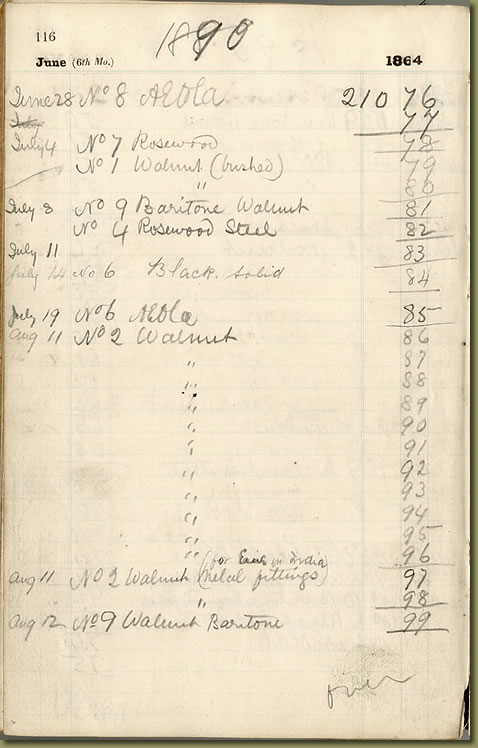 116
1890
June (6th Mo.) 1864
June 28 No 8 AEola 210 76
77
July 4 No 7 Rosewood 78
No 1 Walnut (bushed) 79
" 80
July 8 No 9 Baritone Walnut 81
No 4 Rosewood Steel 82
July 11 83
July 14 No 6 Black. solid 84
July 19 No 6 AEola 85
Aug 11 No 2 Walnut 86
" 87
" 88
" 89
" 90
" 91
" 92
" 93
" 94
" 95
" 96
(for in India
Aug 11 No 2 Walnut metal fittings) 97
" 98
Aug 12 No 9 Walnut Baritone 99
over